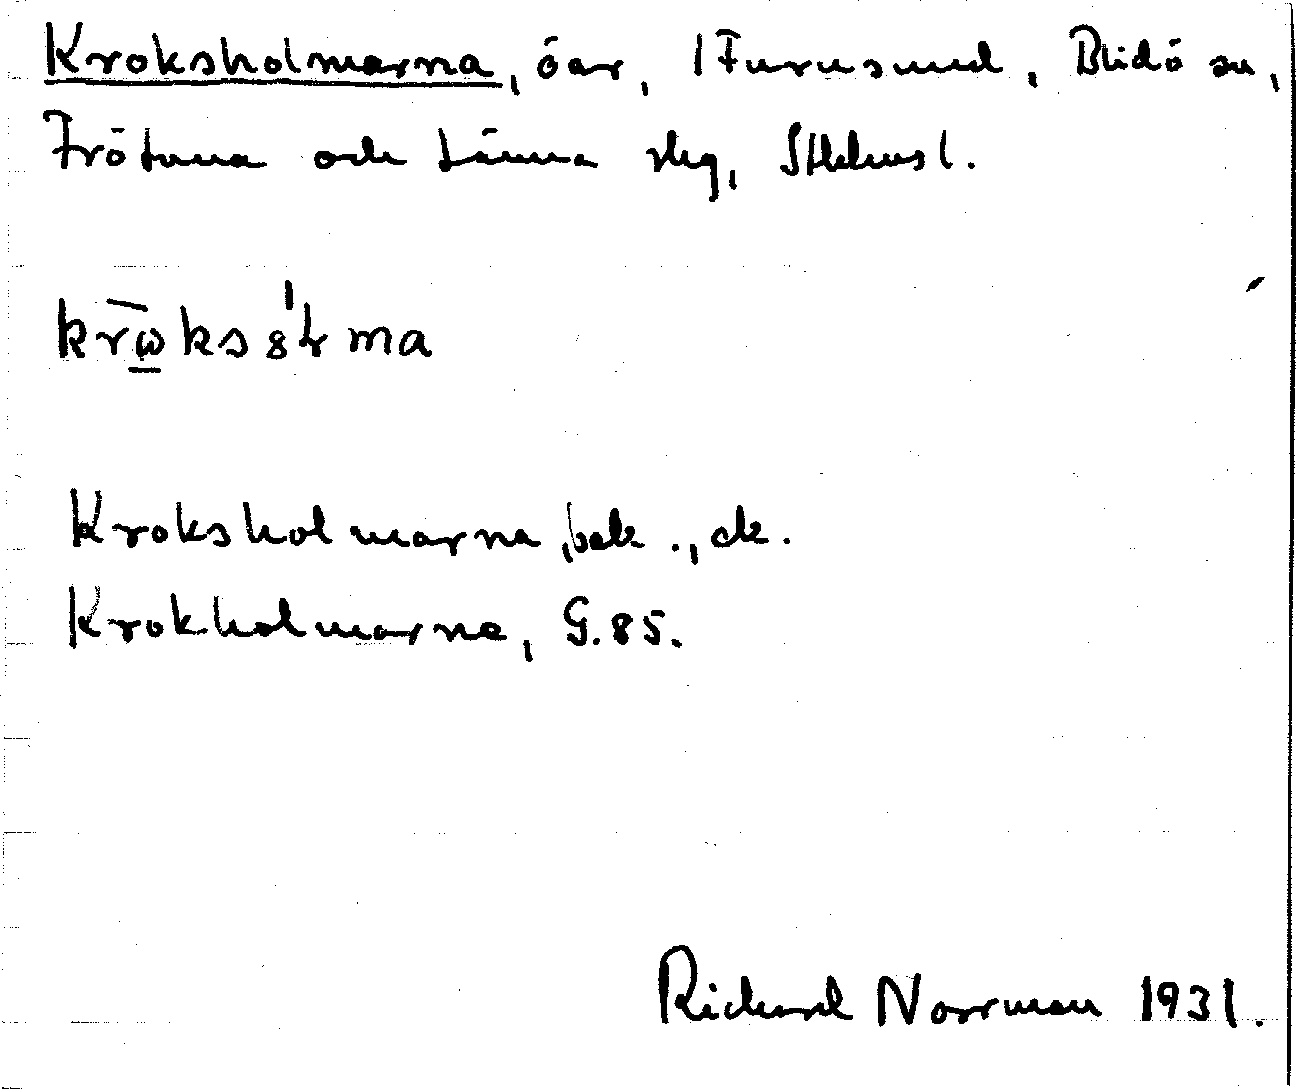 Kroksholmarna, öar, 1 Furusund, Blidö sn,
Frötuna och Länna slg, Sthlms l.
Kroksholmarna, bek., ek.
Krokholmarne, G. 85.
Richard Norrman 1931.